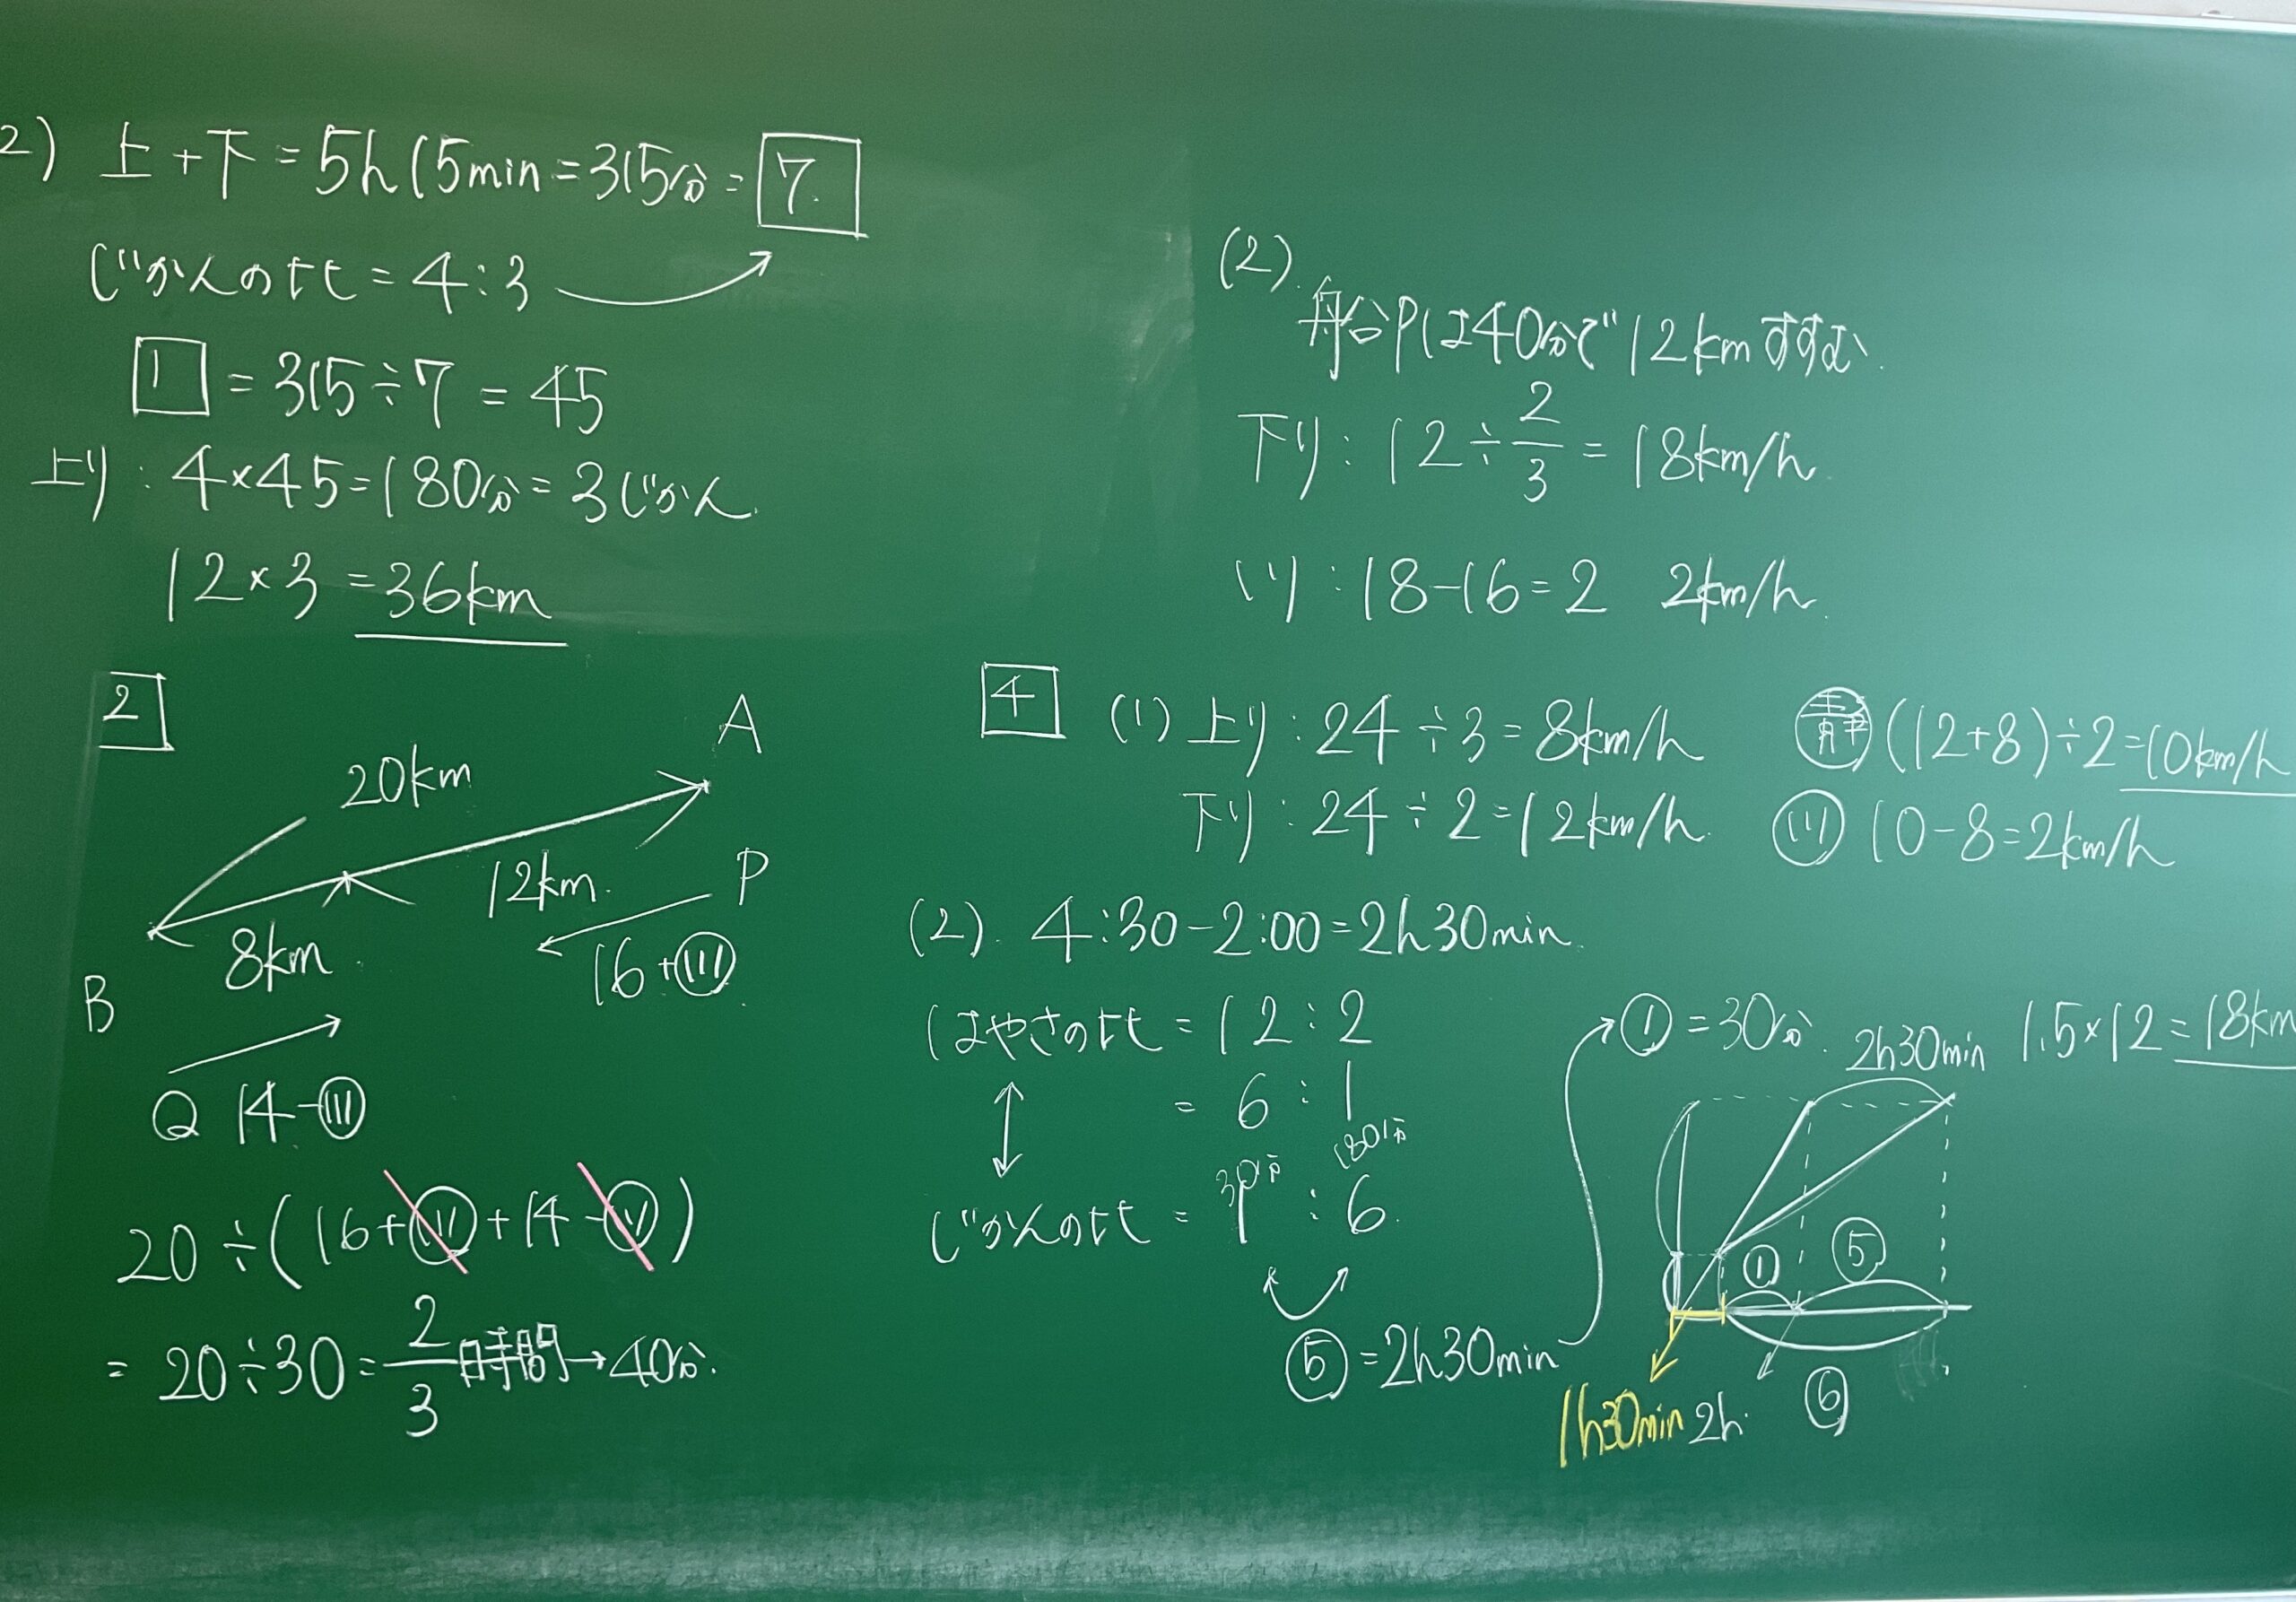 2) 上+下=5h15min=315分=7
じかんの比=4:3
1=315÷7=45
上り:4×45=180分=3じかん
12×3=36km
2
A
20km
12km
P
8km
16+川
B
Q 14-川
20÷(16+川+14-川)
=20÷30=2/3時間→40分.
(2).
船Pは40分で12kmすすむ.
下り:12÷2/3=18km/h
川:18-16=2 2km/h.
4 (1)上り:24÷3=8km/h 静(12+8)÷2=10km/h
下り:24÷2=12km/h. 川 10-8=2km/h
(2). 4:30-2:00=2h30min.
はやさの比=12:2
=6:1
30分 180分
じかんの比=1:6.
⑤=2h30min
①=30分. 2h30min 1.5×12=18km
① ⑤
1h30min 2h. ⑥